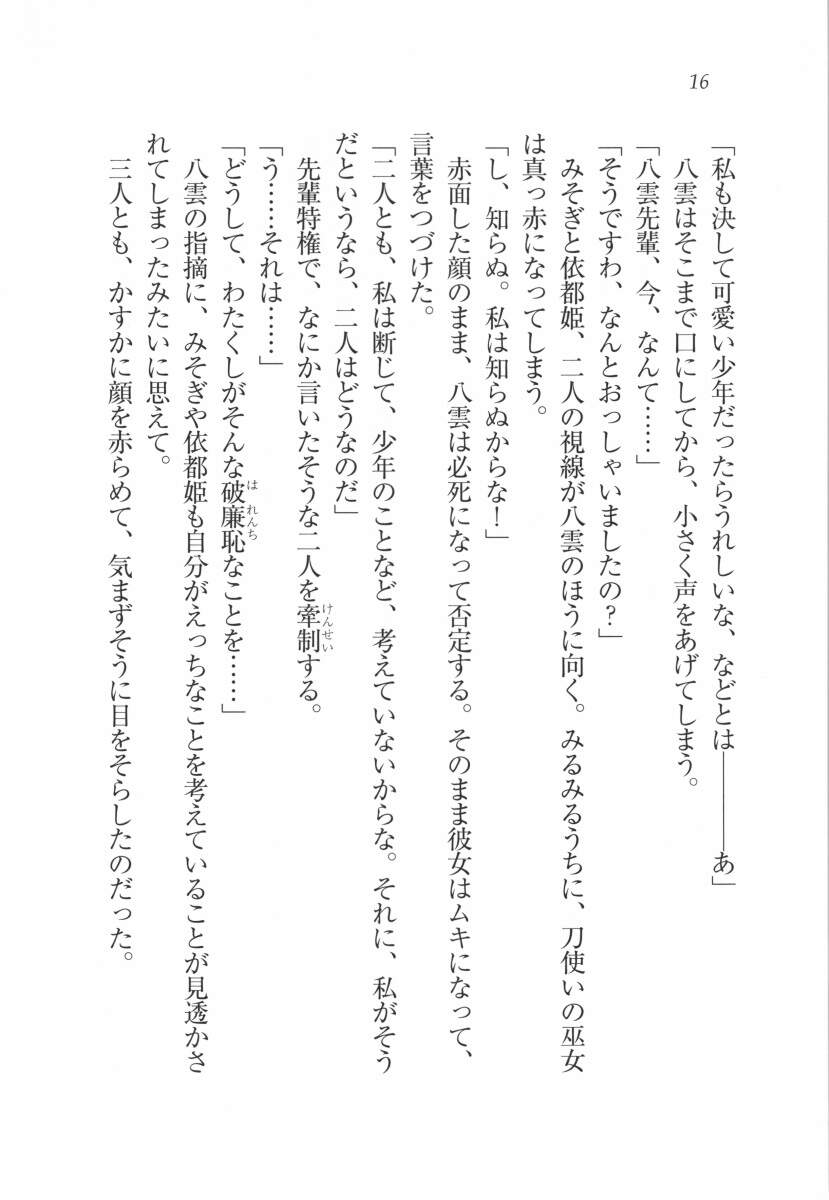 16
「私も決して可愛い少年だったらうれしいな、などとは―――あ」
八雲はそこまで口にしてから、小さく声をあげてしまう。
「八雲先輩、今、なんて……」
「そうですわ、なんとおっしゃいましたの？」
みそぎと依都姫、二人の視線が八雲のほうに向く。みるみるうちに、刀使いの巫女
は真っ赤になってしまう。
「し、知らぬ。私は知らぬからな！」
赤面した顔のまま、八雲は必死になって否定する。そのまま彼女はムキになって、
言葉をつづけた。
「二人とも、私は断じて、少年のことなど、考えていないからな。それに、私がそう
だというなら、二人はどうなのだ」
先輩特権で、なにか言いたそうな二人を牽制する。
けんせい
「う……それは……」
「どうして、わたくしがそんな破廉恥なことを……」
はれんち
八雲の指摘に、みそぎや依都姫も自分がえっちなことを考えていることが見透かさ
れてしまったみたいに思えて。
三人とも、かすかに顔を赤らめて、気まずそうに目をそらしたのだった。